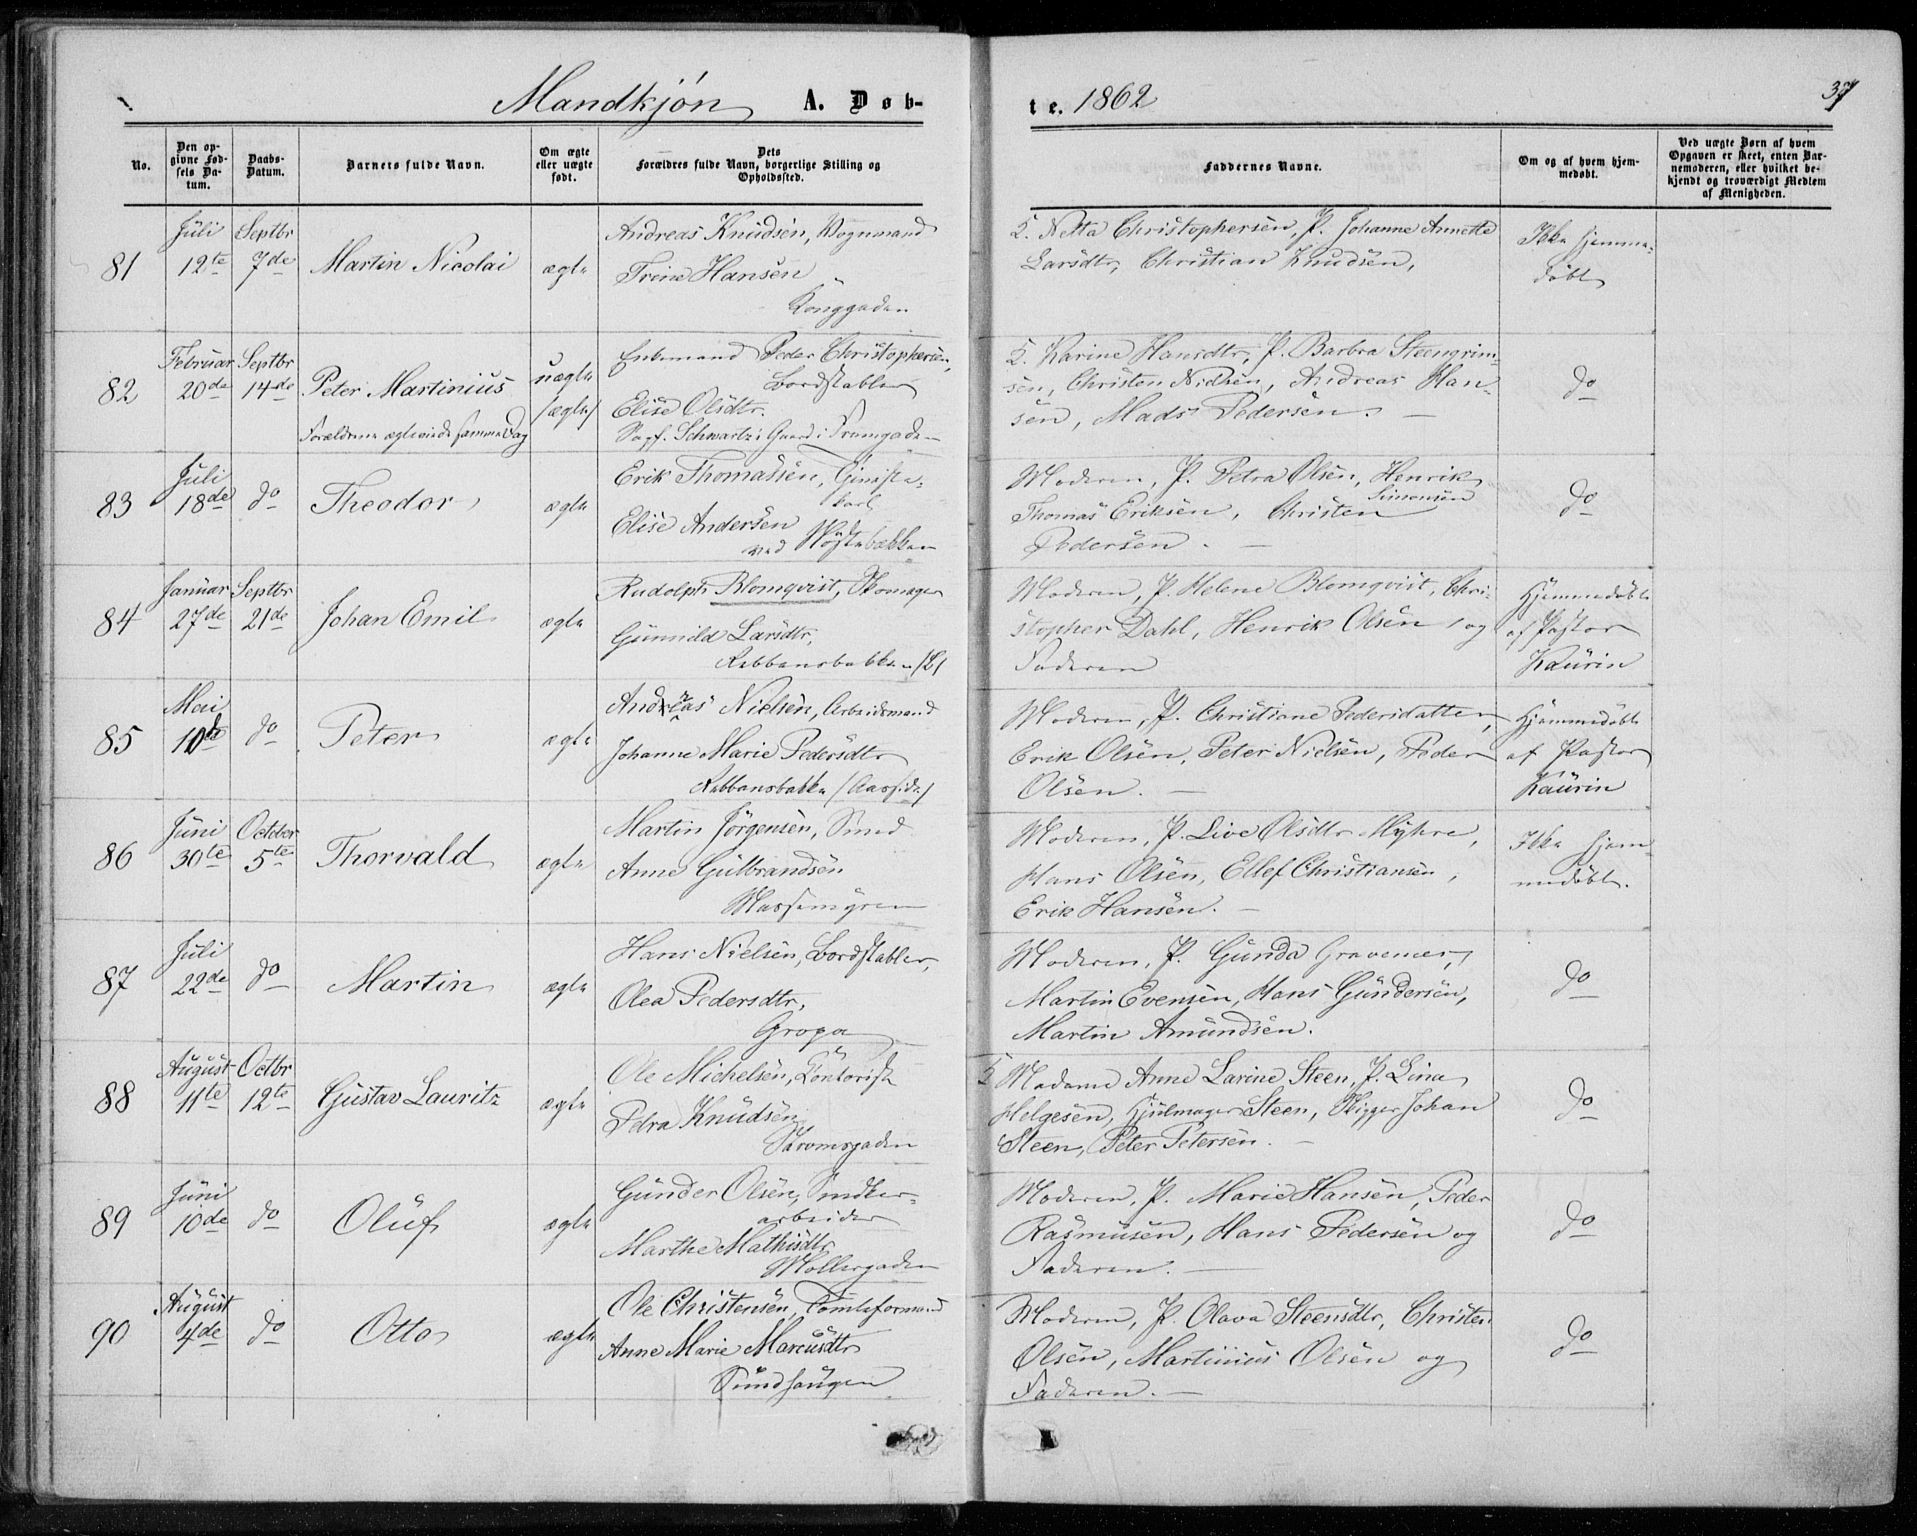 Mandkjøn A. Døb-
te. 1862
37
No.
Den op-
givne Fød-
sels Da-
tum.
Daabs-
Datum.
Barnets fulde Navn.
Om ægte
eller uægte
født.
Dets
Forældres fulde Navn, borgerlige Stilling og
Opholdssted.
Faddernes Navne.
Om og af hvem hjem-
medøbt.
Ved uægte Børn af hvem
Opgaven er skeet, enten Bar-
nemoderen, eller hvilket be-
kjendt og troværdigt Medlem
af Menigheden.
81
Juli
12te
Septbr
7de
Martin Nicolai
ægte
Andreas Knudsen, Vognmand
Trine Hansen
Konggaden
Netta Christophersen, P. Johanne Annette
Larsdtr, Christian Knudsen,
Ikke hjemme-
døbt
82
Februar
20de
Septbr
14de
Peter Martinius
Forældrene ægteviede samme Dag
uægte
/ægte/
Enkemand Peder Christophersen,
Bordstabler
Elise Olsdtr.
Schwartz's Gaard i
Karine Hansdtr, P. Barbra Steengrim-
sen, Christen Nielsen, Andreas Han-
sen, Mads Pedersen. —
do
83
Juli
18de
do
Theodor
ægte
Erik Thomassen, Tjeneste-
karl
Elise Andersen
ved
Moderen, P. Petra Olsen, Henrik
Simonsen
Thomas Eriksen, Christen
Pedersen. —
do
84
Januar
27de
Septbr
21de
Johan Emil
ægte
Rudolph Blomqvist, Skomager
Gunnild Larsdtr,
Moderen, P. Helene Blomqvist, Chri-
stopher Dahl, Henrik Olsen, og
Faderen
Hjemmedøbt
af Pastor
Kaurin
85
Mai
10de
do
Peter
ægte
Andreas Nielsen, Arbeidsmand
Johanne Marie Pedersdtr
/Aassiden/
Moderen, P. Christiane Pedersdatter,
Erik Olsen, Peter Nielsen, Peder
Olsen. —
Hjemmedøbt
af Pastor
Kaurin
86
Juni
30te
October
5te
Thorvald
ægte
Martin Jørgensen, Smed
Anne Gulbrandsen
Moderen, P. Live Olsdtr Myhre,
Hans Olsen, Ellef Christiansen,
Erik Hansen. —
Ikke hjem-
medøbt.
87
Juli
22de
do
Martin
ægte
Hans Nielsen, Bordstabler,
Olea Pedersdtr,
Gropa
Moderen, P. Gunda Gravemer,
Martin Evensen, Hans Gundersen,
Martin Amundsen.
do
88
August
11te
Octbr
12te
Gustav Lauritz
ægte
Ole Michelsen, Contorist
Petra Knudsen
Strømsgaden
Madame Anne Larine Steen, P. Lina
Helgesen, Hjulmager Steen, Skipper Johan
Steen, Peter Petersen. —
do
89
Juni
10de
do
Oluf
ægte
Gunder Olsen, Snedker-
arbeider
Marthe Mathisdtr
Møllergaden
Moderen, P. Marie Hansen, Peder
Rasmusen, Hans Pedersen og
Faderen. —
do
90
August
4de
do
Otto
ægte
Ole Christensen, Tomteformand
Anne Marie Marcusdtr
Sundhaugen
Moderen, P. Olava Steensdtr, Christen
Olsen, Martinius Olsen og
Faderen. —
do